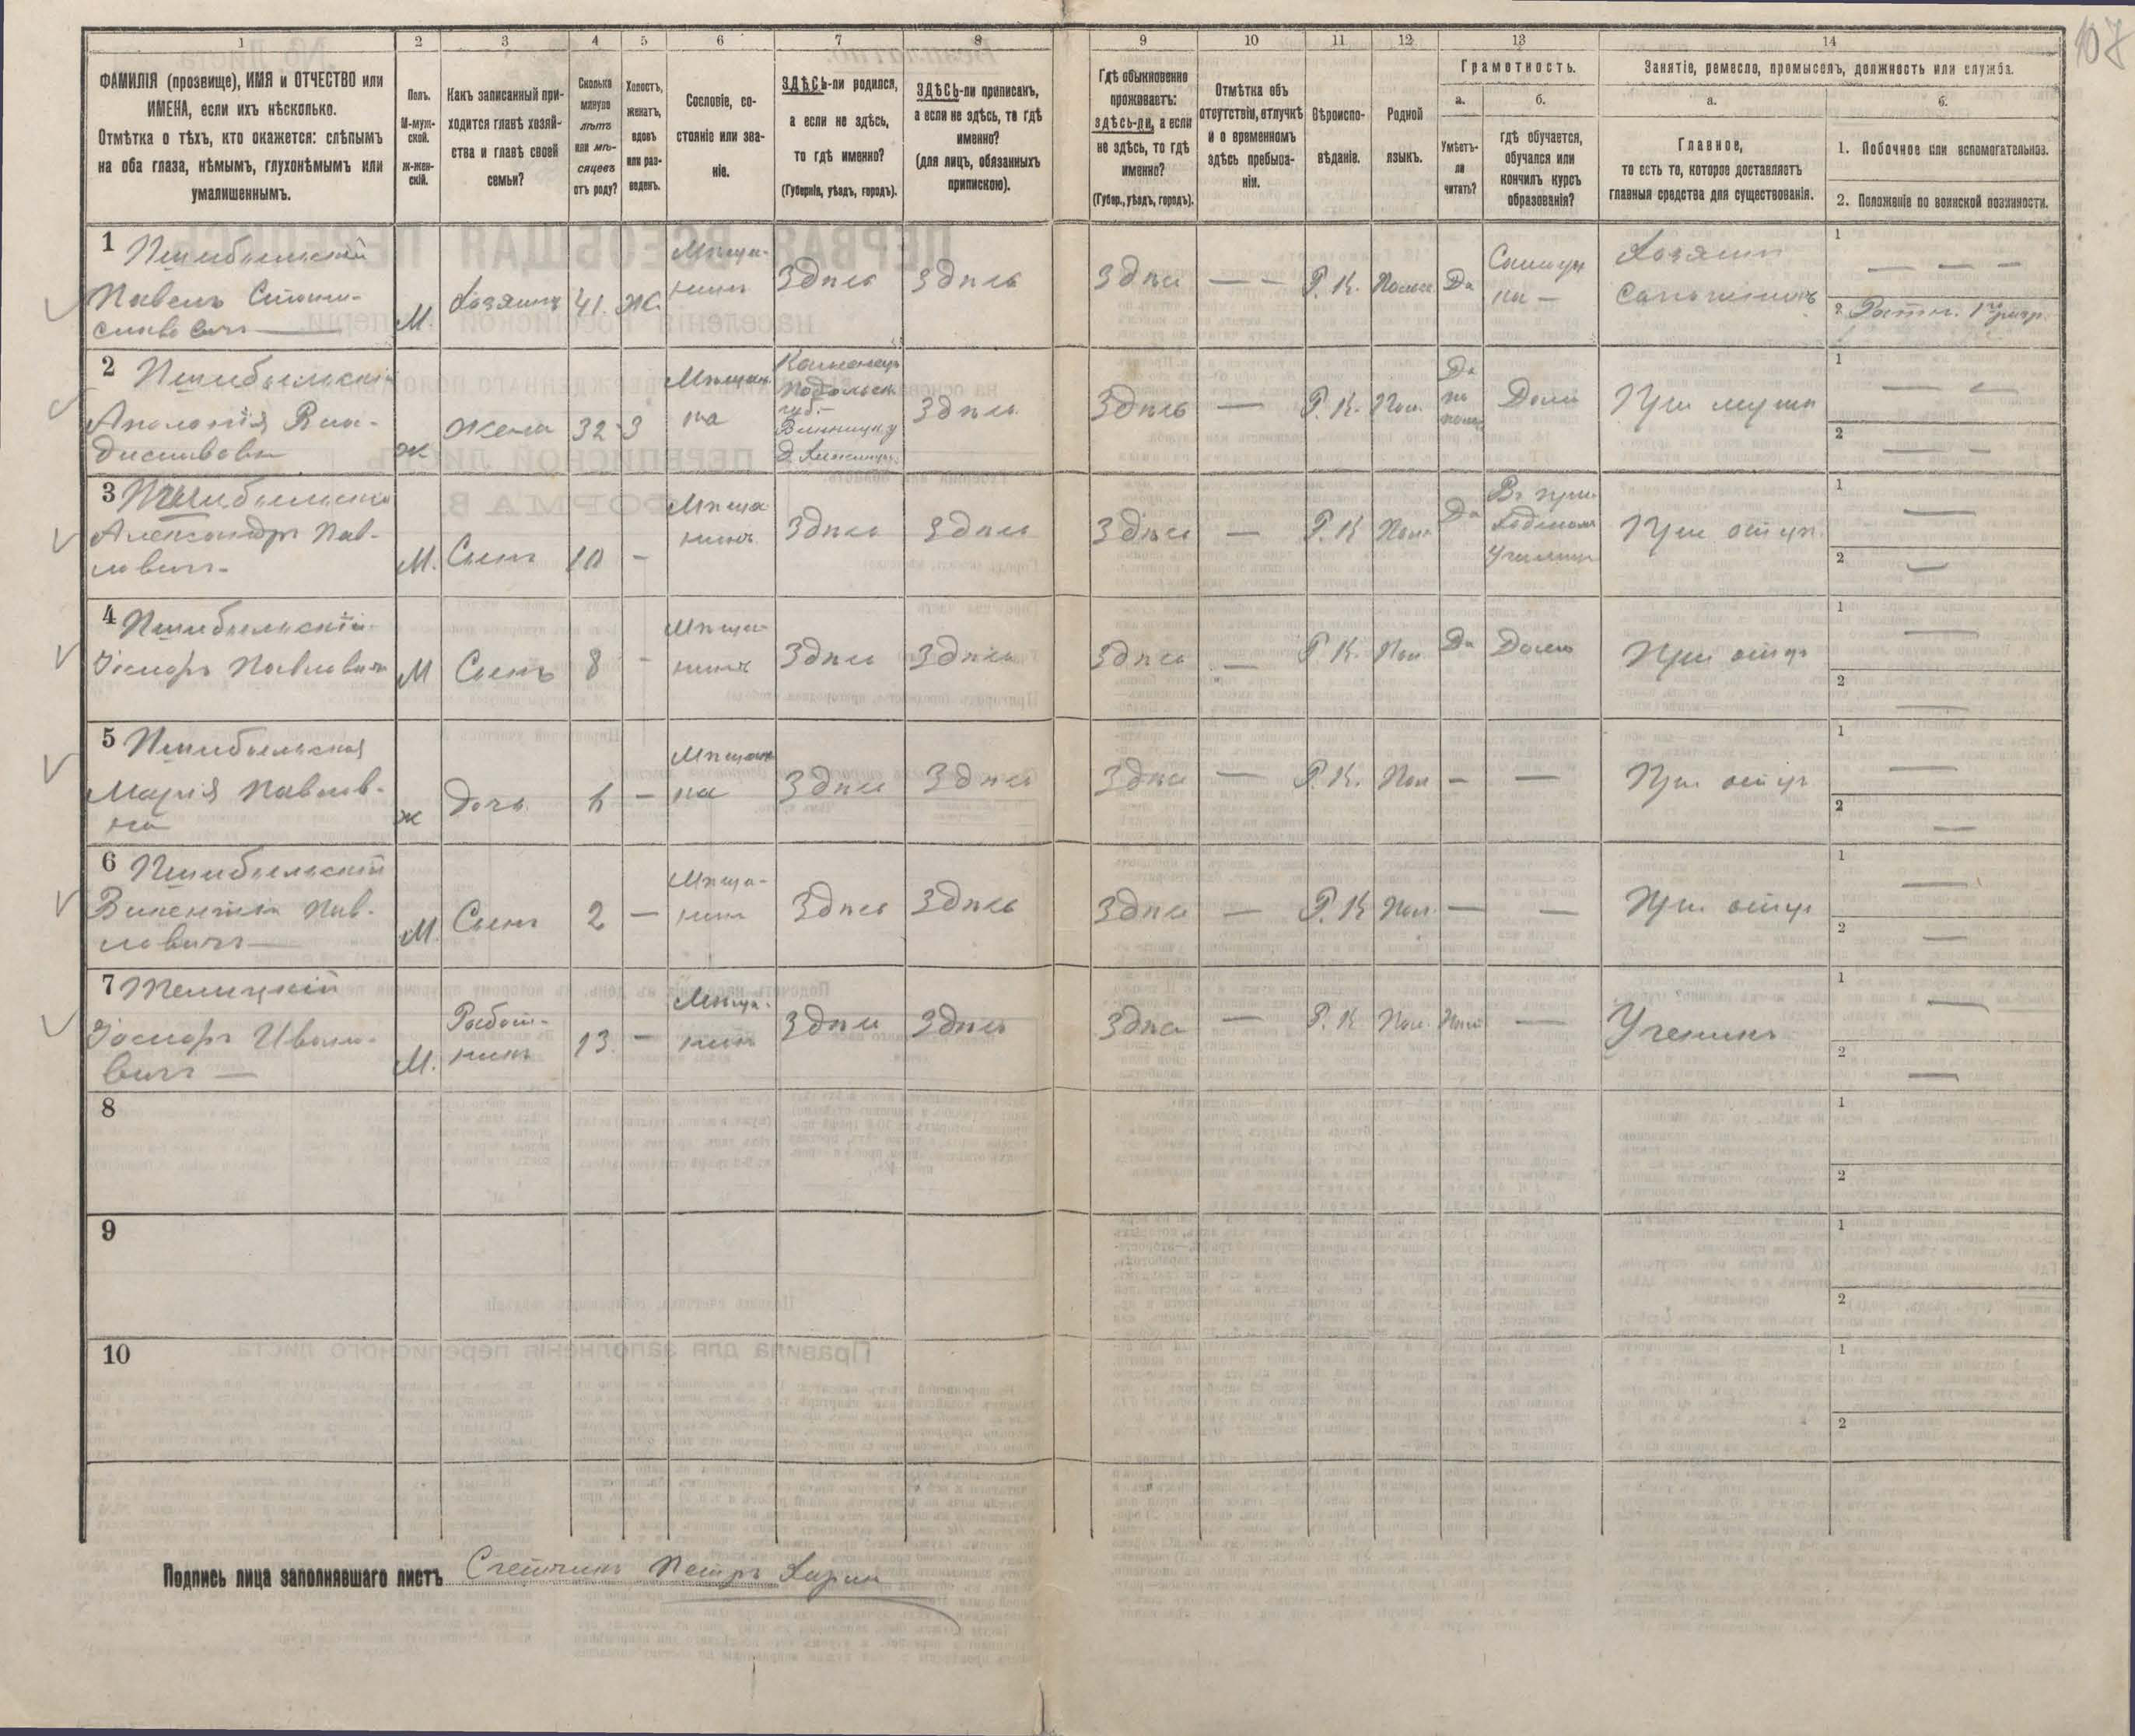 107
1 2 3 4 5 6 7 8 9 10 11 12 13 14
ФАМИЛІЯ (прозвище), ИМЯ и ОТЧЕСТВО или
ИМЕНА, если ихъ нѣсколько.
Отмѣтка о тѣхъ, кто окажется: слѣпымъ
на оба глаза, нѣмымъ, глухонѣмымъ или
умалишеннымъ.
Полъ.
М-муж-
ской.
ж-жен-
скій.
Какъ записанный при-
ходится главѣ хозяй-
ства и главѣ своей
семьи?
Сколько
минуло
лѣтъ
или мѣ-
сяцевъ
отъ роду?
Холостъ,
женатъ,
вдовъ
или раз-
веденъ.
Сословіе, со-
стояніе или зва-
ніе.
ЗДѢСЬ-ли родился,
а если не здѣсь,
то гдѣ именно?
(Губернія, уѣздъ, городъ).
ЗДѢСЬ-ли приписанъ,
а если не здѣсь, то гдѣ
именно?
(для лицъ, обязанныхъ
припискою).
Гдѣ обыкновенно
проживаетъ:
здѣсь-ли, а если
не здѣсь, то гдѣ
именно?
(Губер., уѣздъ, городъ).
Отмѣтка объ
отсутствіи, отлучкѣ
и о временномъ
здѣсь пребыва-
ніи.
Вѣроиспо-
вѣданіе.
Родной
языкъ.
Грамотность.
а.
Умѣетъ-
ли
читать?
б.
гдѣ обучается,
обучался или
кончилъ курсъ
образованія?
Занятіе, ремесло, промыселъ, должность или служба.
а.
Главное,
то есть то, которое доставляетъ
главныя средства для существованія.
б.
1. Побочное или вспомогательное.
2. Положеніе по воинской повинности.
1 Пшибыльскій
Павелъ Стани-
славовичъ —
М.
Хозяинъ
41.
Ж.
Мѣща-
нинъ
Здѣсь
Здѣсь
Здѣсь
— —
Р. К.
Польск
Да
Хозяинъ
Сапожникъ
1
— — —
2 Ратн. 1го разр.
2 Пшибыльская
Аполонія Вла-
диславовн
ж
Жена
32
З
Мѣщан
ка
Каменецъ
Подольск
губ.-
Винницк у
Здѣсь
Здѣсь
—
Р. К.
Пол.
Да
по
польс
Дома
При мужѣ
1
—
2
— —
3 Пшибыльскій
Александръ Пав-
ловичъ-
М.
Сынъ
10
-
Мѣща
нинъ
Здѣсь
Здѣсь
Здѣсь
—
Р. К
Пол.
Да
Въ при-
ходскомъ
училищѣ
При отцѣ
1
—
2
—
4 Пшибыльскій-
Іосифъ Павловичъ
М
Сынъ
8
-
Мѣща-
нинъ
Здѣсь
Здѣсь
Здѣсь
—
Р. К.
Пол
Да
Дома
При отцѣ
1
—
2
—
5 Пшибыльская
Марія Павлов-
на
ж
Дочь
6
—
Мѣщан
ка
Здѣсь
Здѣсь
Здѣсь
—
Р. К.
Пол
-
—
При отцѣ
1
—
2
—
6 Пшибыльскій
Викентій Пав-
ловичъ —
М.
Сынъ
2
—
Мѣща-
нинъ
Здѣсь
Здѣсь
Здѣсь
—
Р. К
Пол.
—
—
При отцѣ
1
—
2
—
7
Іосифъ Ивано-
вичъ —
М.
Работ-
никъ
13
-
Мѣща-
нинъ
Здѣсь
Здѣсь
Здѣсь
—
Р. К
Пол.
Нѣтъ
—
Ученикъ
1
—
2
—
8
1
2
9
1
2
10
1
2
Подпись лица заполнявшаго листъ Счетчикъ Петръ